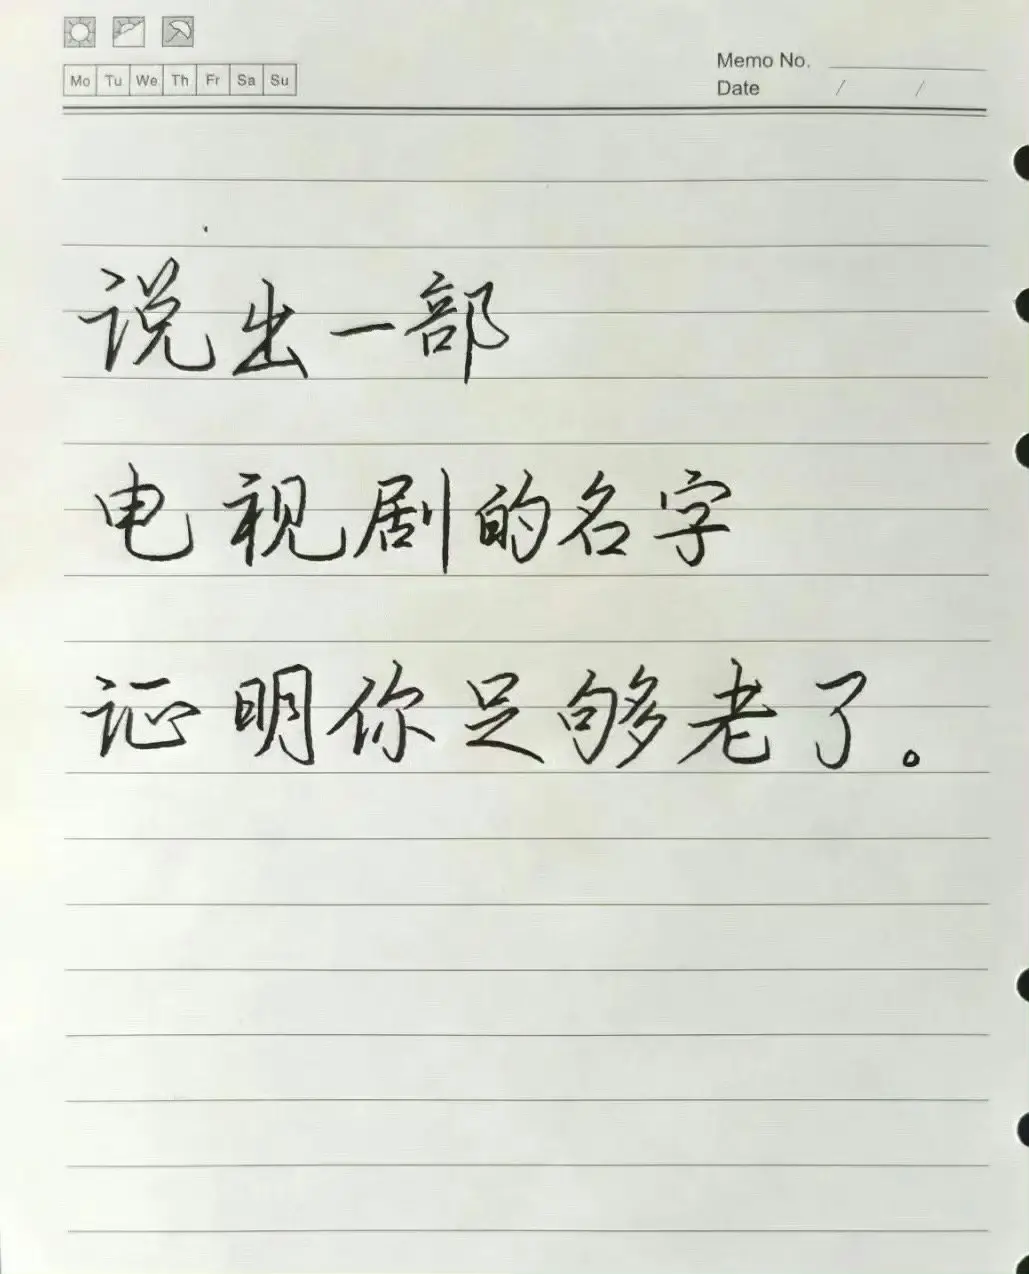 Mo Tu We Th Fr Sa Su
Memo No.
Date / /
说出一部
电视剧的名字
证明你足够老了。